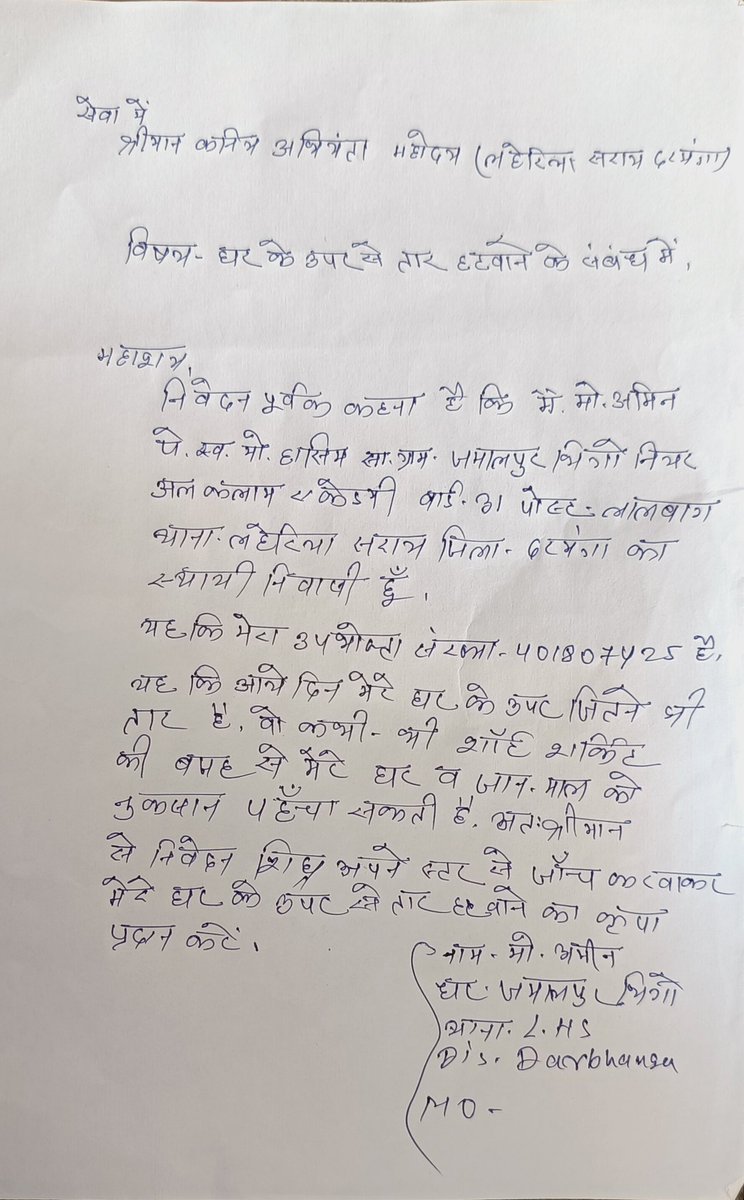 सेवा में
श्रीमान कनिय अभियंता महोदय (लहेरिया सराय दरभंगा)
विषय- घर के उपर से तार हटवाने के संबंध में,
महाशय,
निवेदन पूर्वक कहना है कि मैं. मो. अमिन
पे. स्व. मो. हासिम सा. ग्राम- जमालपुर भिगो नियर
अल कलाम एकेडमी वार्ड- 31 पोस्ट- लालबाग
थाना- लहेरिया सराय जिला- दरभंगा का
स्थायी निवासी हूँ.
यह कि मेरा उपभोक्ता संख्या- है.
यह कि आये दिन मेरे घर के उपर जितने भी
तार है. वो कभी- भी शॉर्ट शर्किट
की वजह से मेरे घर व जान. माल को
नुकसान पहुँचा सकती है. अतः श्रीमान
से निवेदन शिघ्र अपने स्तर से जाँच करवाकर
मेरे घर के उपर से तार हटवाने का कृपा
प्रदान करें.
नाम- मो. अमीन
घर- जमालपुर भिगो
थाना- L. HS
Dis. Darbhanga
MO -